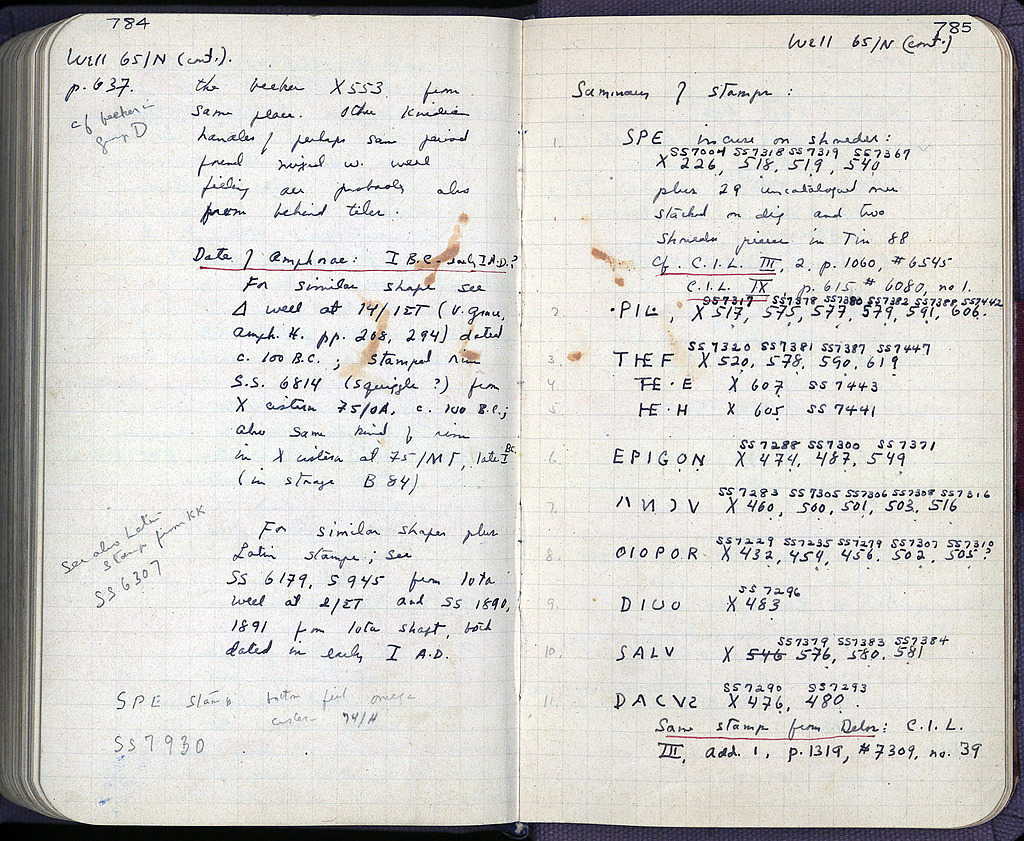 784
Well 65/N (cont.).
p. 637.
cf beaker in
group D
the beaker X 553 from
same place. Other Knidian
handles of perhaps same period
found mixed w. well
filling are probably also
from behind tiles.
Date of Amphorae: I B.C. - early I A.D.?
For similar shape see
Δ well at 14/IET (V. Grace,
Amph. H. pp. 208, 294) dated
c. 100 B.C.; stamped rim
S.S. 6814 (squiggle?) from
X cistern 75/0A, c. 100 B.C.;
also same kind of rim
in X cistern at 75/MT, late I BC.
(in storage B 84)
See also Latin
stamp from KK
SS 6307
For similar shapes plus
Latin stamps; see
SS 6179, 5945 from Iota
well at 2/ET and SS 1890,
1891 from Iota shaft, both
dated in early I A.D.
SPE stamp bottom fill omega
cistern 74/H
SS 7930
785
Well 65/N (cont.)
Summary of stamps:
1. SPE incuse on shoulder:
SS7004 SS7318 SS7319 SS7367
X 226, 518, 519, 540
plus 29 uncatalogued ones
stacked on dig and two
shoulder pieces in Tin 88
Cf. C.I.L. III, 2. p. 1060, #6545
C.I.L. IX, p. 615 # 6080, no 1.
SS7317 SS7378 SS7380 SS7382 SS7388, SS7442
2. ·PIL, X 517, 575, 577, 579, 591, 606.
SS 7320 SS7381 SS7387 SS7447
3. THEF X 520, 578, 590, 619
4 TE·E X 607 SS 7443
5. TE·H X 605 SS 7441
SS7288 SS7300 SS7371
6. EPIGON X 474, 487, 549
SS7283 SS7305 SS7306 SS7308 SS7316
7. X 460, 500, 501, 503, 516
SS7229 SS7235 SS7279 SS7307 SS7310
8. OIOPOR X 432, 454, 456, 502, 505?
SS 7296
9. DIUO X 483
SS7379 SS7383 SS7384
10. SALV X 546 576, 580, 581
SS7290 SS7293
11. DACVS X 476, 480.
Same stamp from Delos: C.I.L.
III, add. 1, p. 1319, #7309, no. 39